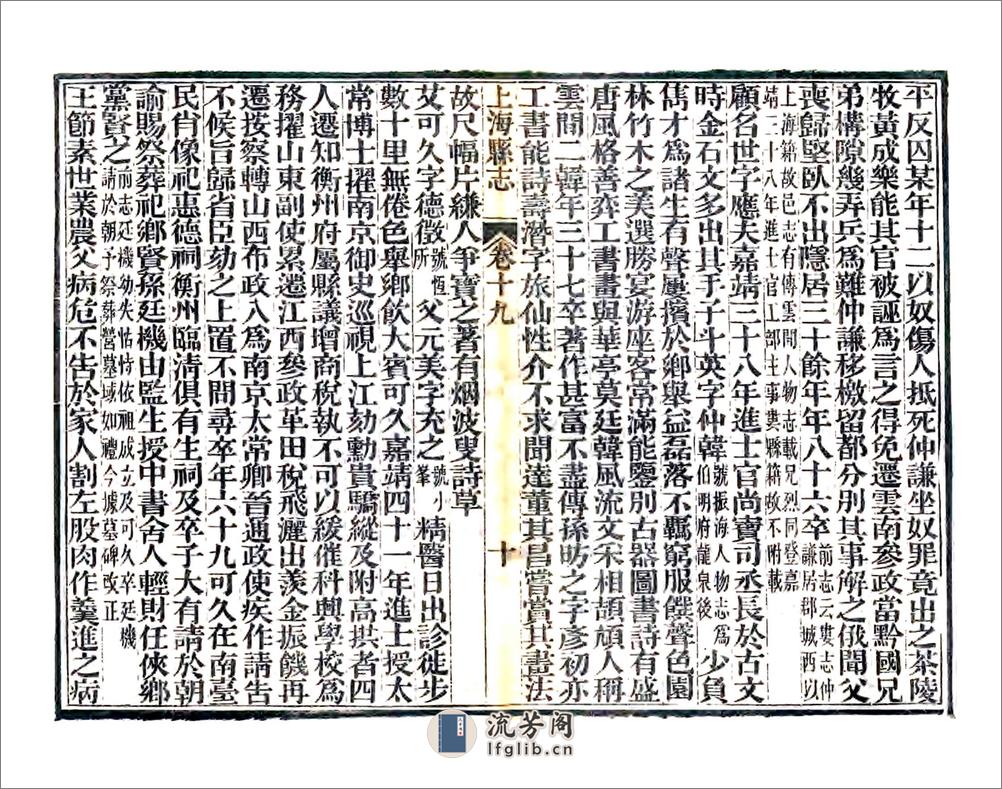 平反囚某年十二以奴傷人抵死仲謙坐奴罪竟出之茶陵
牧黃成樂能其官被誣爲言之得免遷雲南參政當黔國兄
弟構隙幾弄兵爲難仲謙移檄留都分別其事解之俄聞父
喪歸堅臥不出隱居三十餘年年八十六卒前志云婁志仲謙居郡城西以
上海籍故邑志有傳雲間人物志載兄烈同登嘉靖三十八年進士官工部主事婁縣籍故不附載
顧名世字應夫嘉靖三十八年進士官尚寶司丞長於古文
時金石文多出其手子斗英字仲韓號振海人物志爲伯明府龍泉後少負
雋才爲諸生有聲屢擯於鄉舉益磊落不羈窮服饌聲色園
林竹木之美選勝宴游座客常滿能鑒別古器圖書詩有盛
唐風格善弈工書書與華亭莫廷韓風流文采相頡頏人稱
雲間二韓年三十七卒著作甚富不盡傳孫昉之字彥初亦
工書能詩壽潛字旅仙性介不求聞達董其昌嘗賞其畫法
故尺幅片縑人爭寶之著有烟波叟詩草
上海縣志 卷十九 十
艾可久字德徵號恆所父元美字充之號小峯精醫日出診徒步
數十里無倦色舉鄉飲大賓可久嘉靖四十一年進士授太
常博士擢南京御史巡視上江劾勳貴驕縱及附高拱者四
人遷知衡州府屬縣議增商稅執不可以緩催科興學校爲
務擢山東副使累遷江西參政革田稅飛灑出羨金振饑再
遷按察轉山西布政入爲南京太常卿晉通政使疾作請告
不候旨歸省臣劾之上置不問尋卒年六十九可久在南臺
民肖像祀惠德祠衡州臨淸俱有生祠及卒子大有請於朝
諭賜祭葬祀鄉賢孫廷機由監生授中書舍人輕財任俠鄉
黨賢之前志廷機幼失怙恃依祖成立及可久卒廷機請於朝予祭葬營墓域如禮今據墓碑改正
王節素世業農父病危不告於家人割左股肉作羹進之病
流芳阁
lfglib.cn